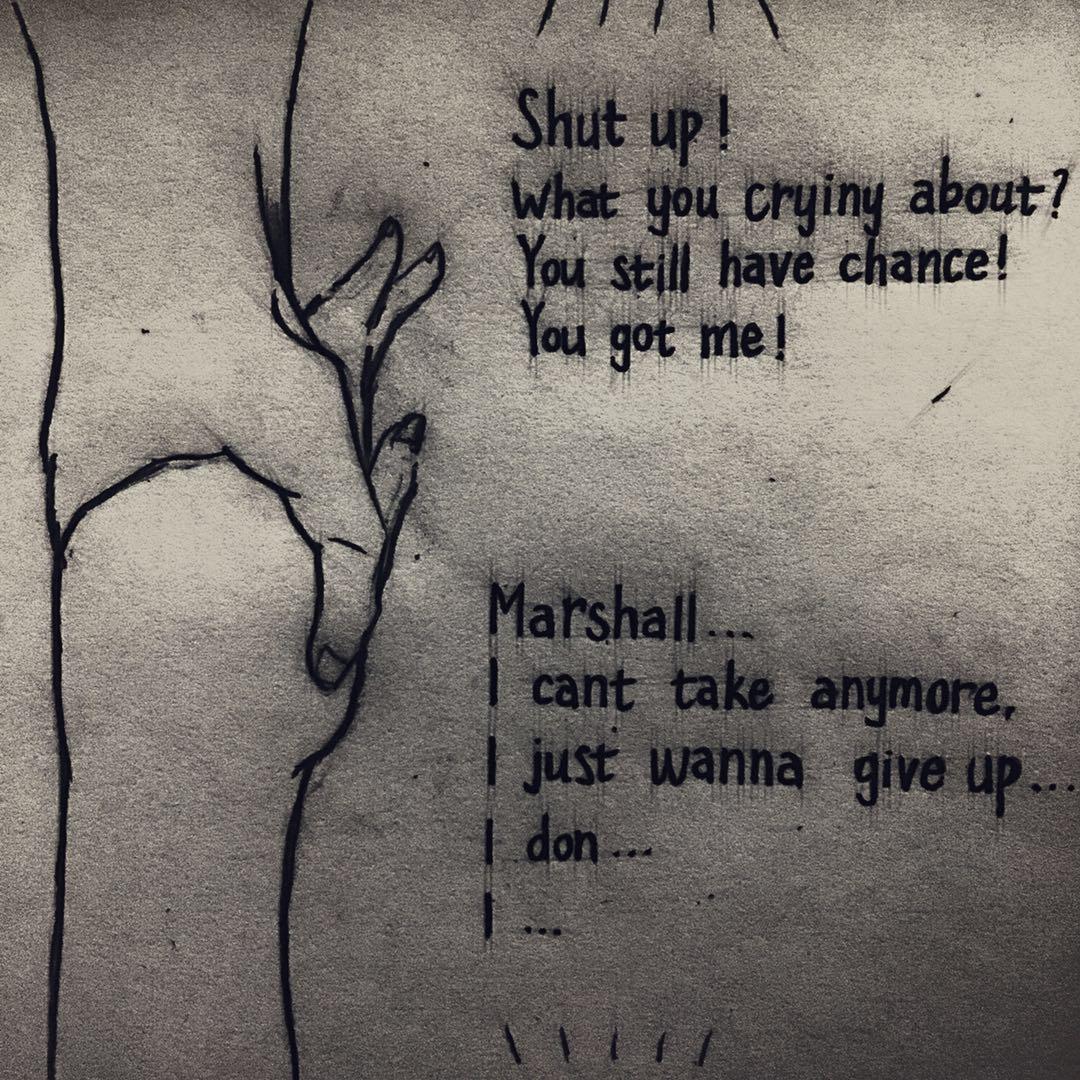 Shut up!
What you cryiny about?
You still have chance!
You got me!
Marshall...
I cant take anymore,
I just wanna give up...
I don...
I ...